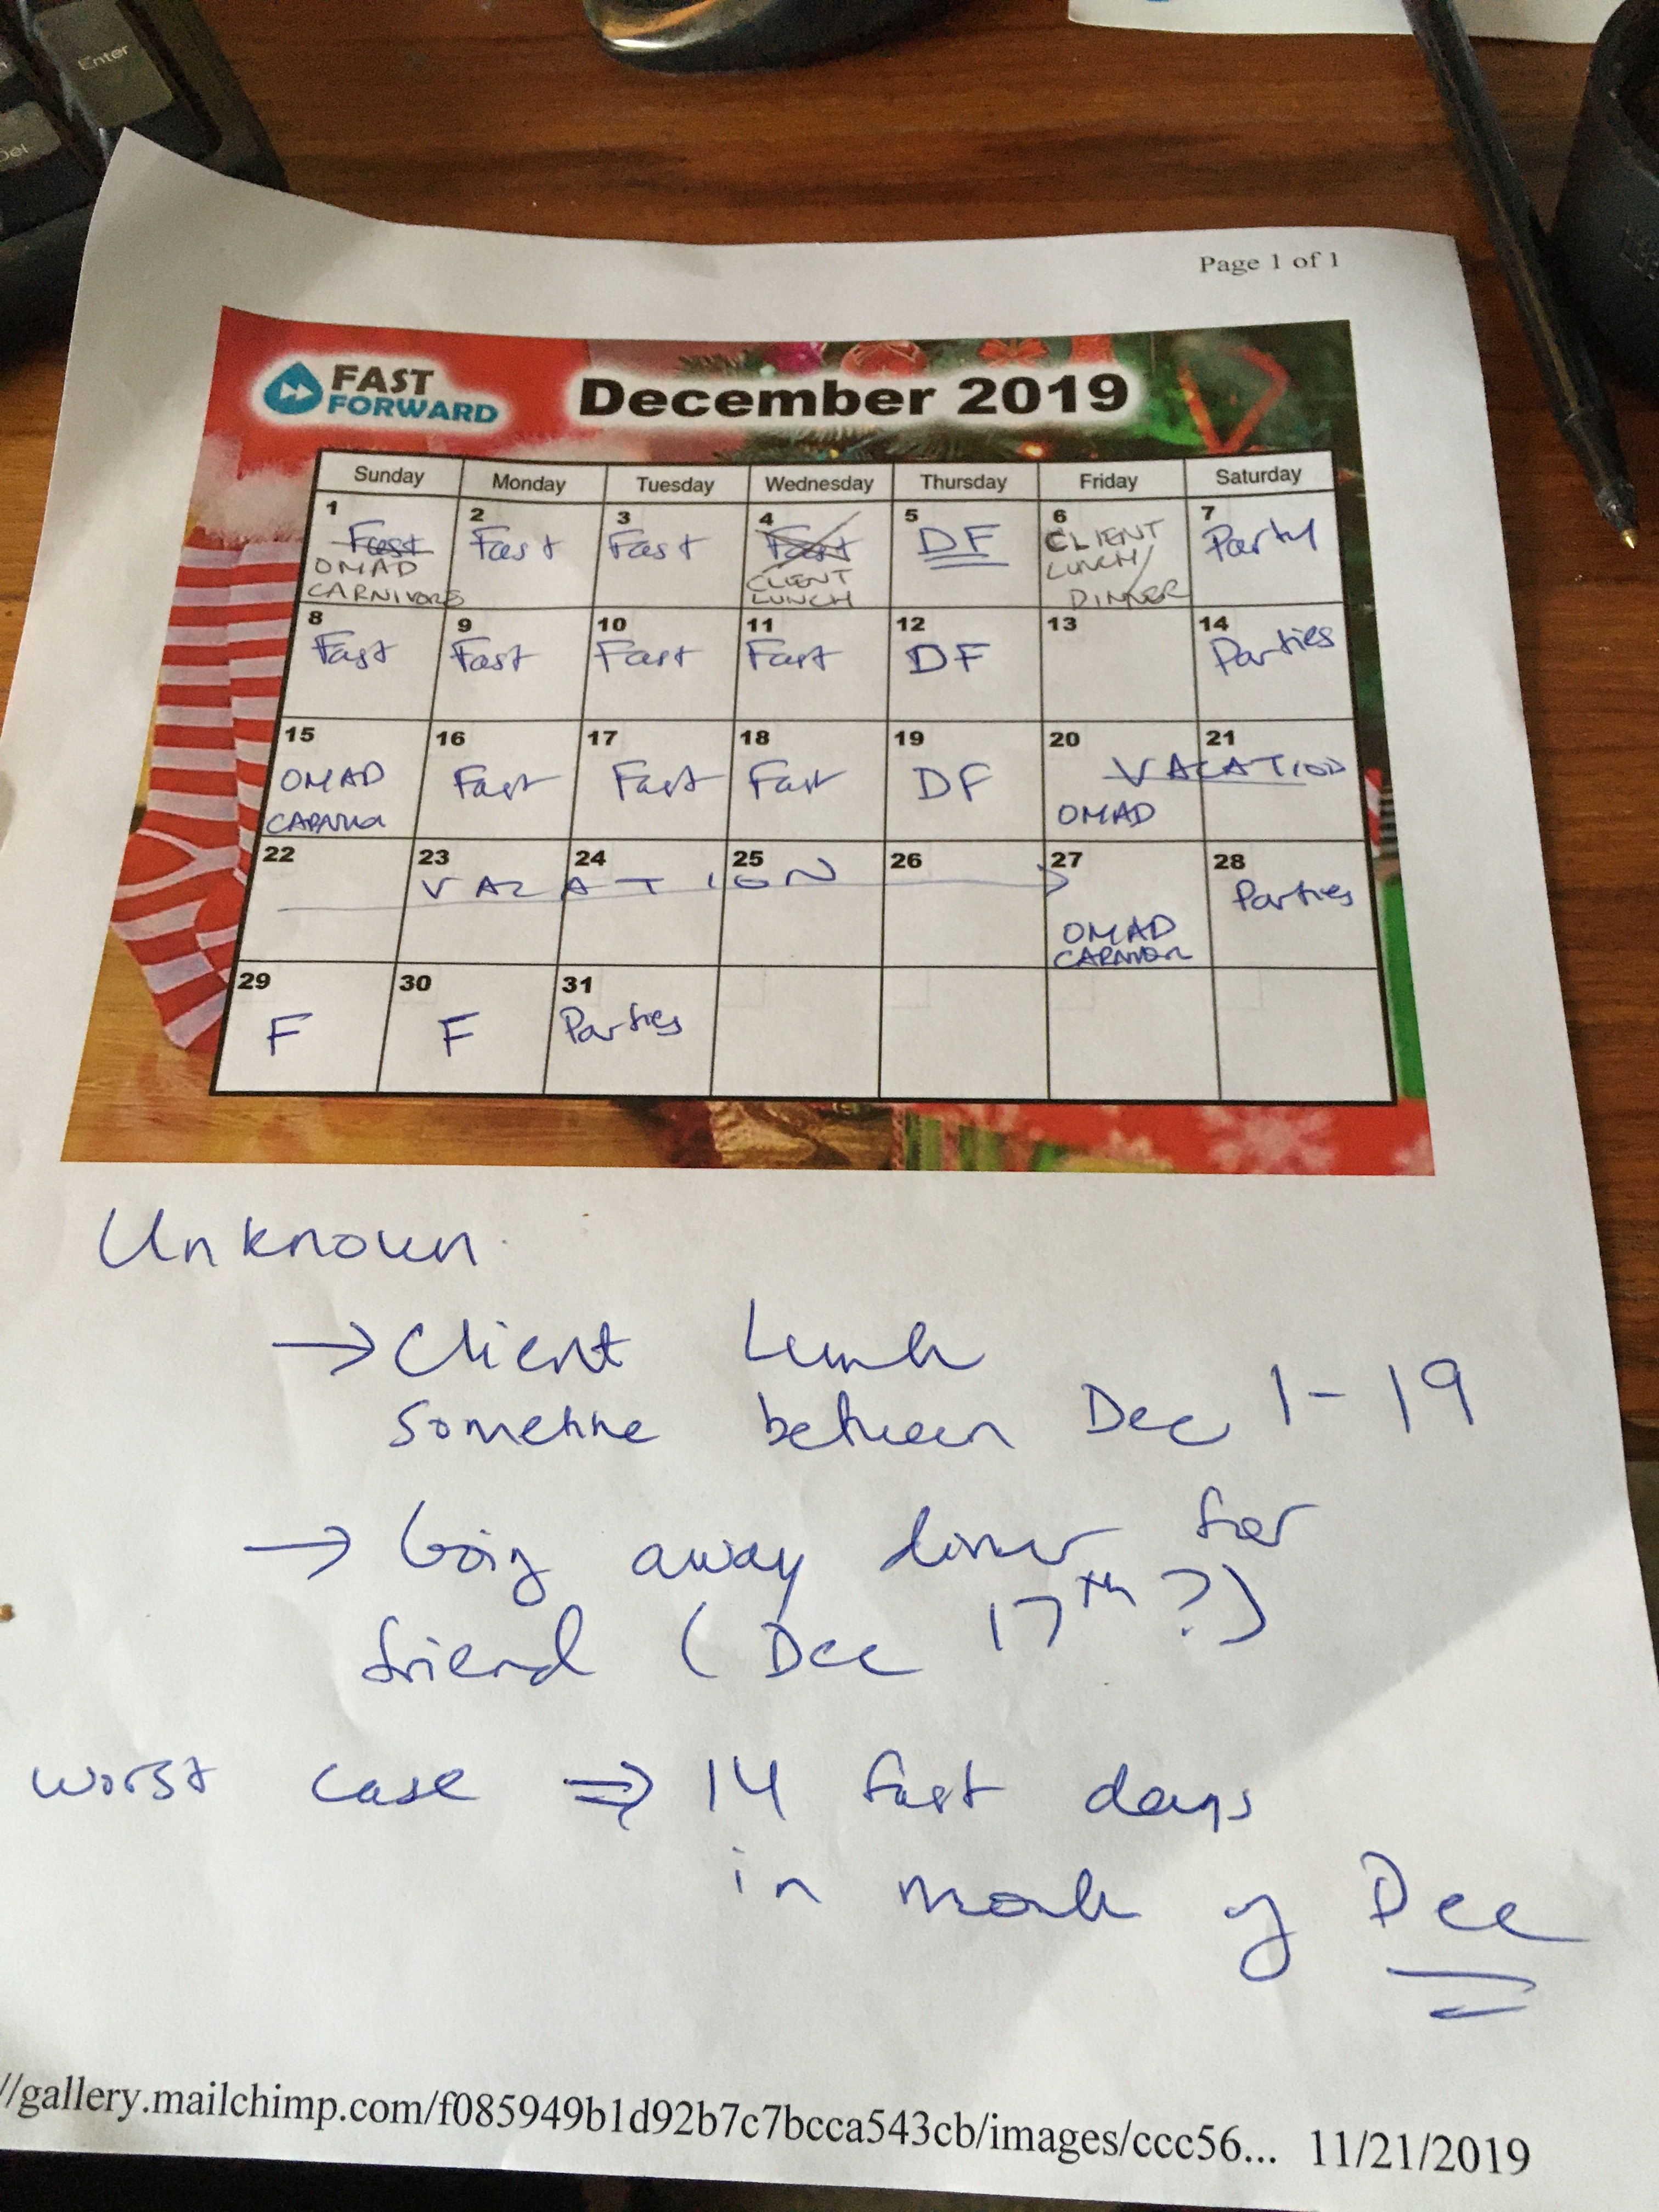 Enter
Del
Page 1 of 1
FAST
FORWARD
December 2019
Sunday Monday Tuesday Wednesday Thursday Friday Saturday
1 2 3 4 5 6 7
Fast Fast Fast Fast DF CLIENT Party
OMAD CLIENT LUNCH/
CARNIVORE LUNCH DINNER
8 9 10 11 12 13 14
Fast Fast Fast Fast DF Parties
15 16 17 18 19 20 21
OMAD Fast Fast Fast DF VACATION
OMAD
22 23 24 25 26 27 28
VACATION Parties
OMAD
29 30 31
F F Parties
Unknown
→ Client Lunch
sometime between Dec 1-19
→ Going away dinner for
friend (Dec 17th?)
worst case ⇒ 14 fast days
in month of Dec
//gallery.mailchimp.com/f085949b1d92b7c7bcca543cb/images/ccc56... 11/21/2019